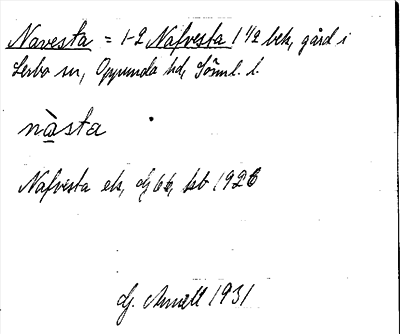 Navesta = 1-2 Nafvesta 1 1/2 bek, gård i
Lerbo sn, Oppunda hd, Söml. l.
nàsta
Nafvesta ek, dj 66, kb 1926
dj. 1931